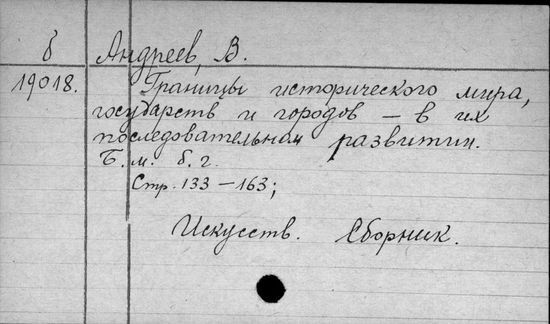 б Андреев, В.
19018. Границы исторического мира,
государств и городов — в их
последовательном развитии.
Б. м. б. г.
Стр. 133 — 163;
Искусств. Сборник.